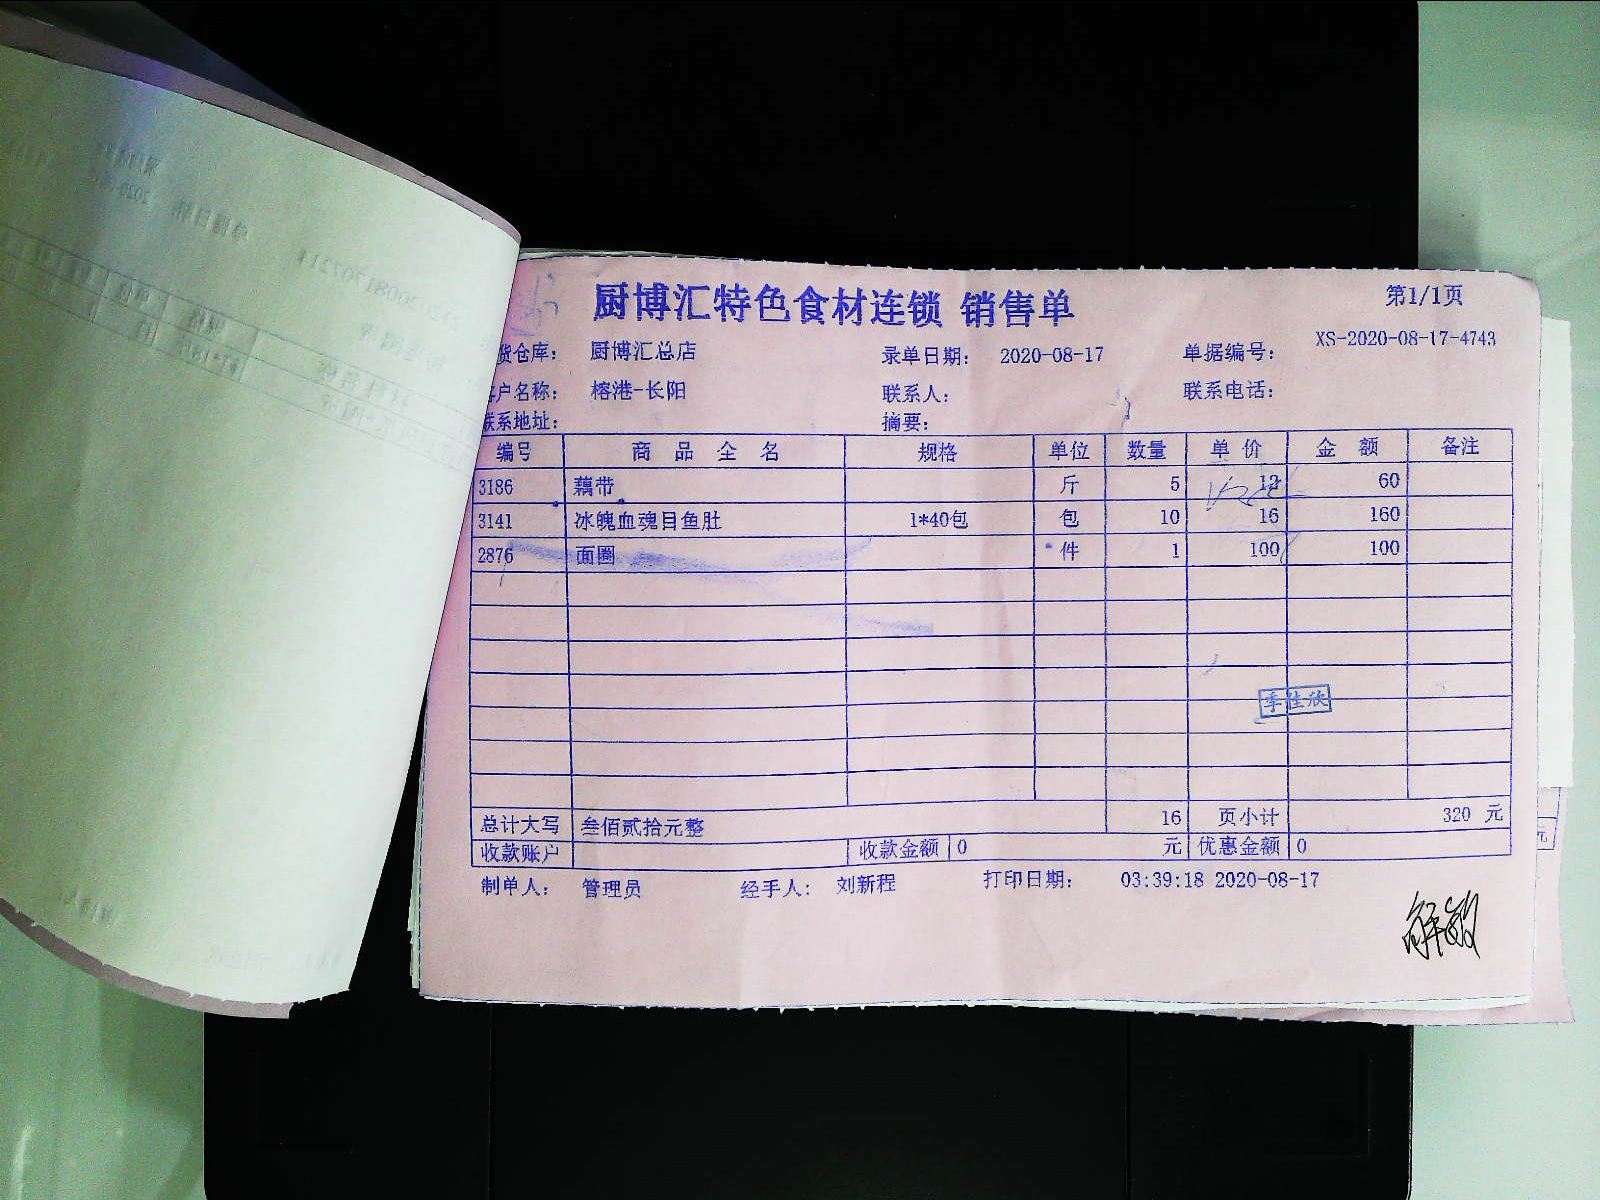 厨博汇特色食材连锁 销售单
第1/1页
货仓库： 厨博汇总店 录单日期： 2020-08-17 单据编号： XS-2020-08-17-4743
客户名称： 榕港-长阳 联系人： 联系电话：
联系地址： 摘要：
编号 商品全名 规格 单位 数量 单价 金额 备注
3186 藕带 斤 5 12 60
3141 冰魄血魂目鱼肚 1*40包 包 10 16 160
2876 面圈 件 1 100 100
总计大写 叁佰贰拾元整 16 页小计 320 元
收款账户 收款金额 0 元 优惠金额 0
制单人： 管理员 经手人： 刘新程 打印日期： 03:39:18 2020-08-17